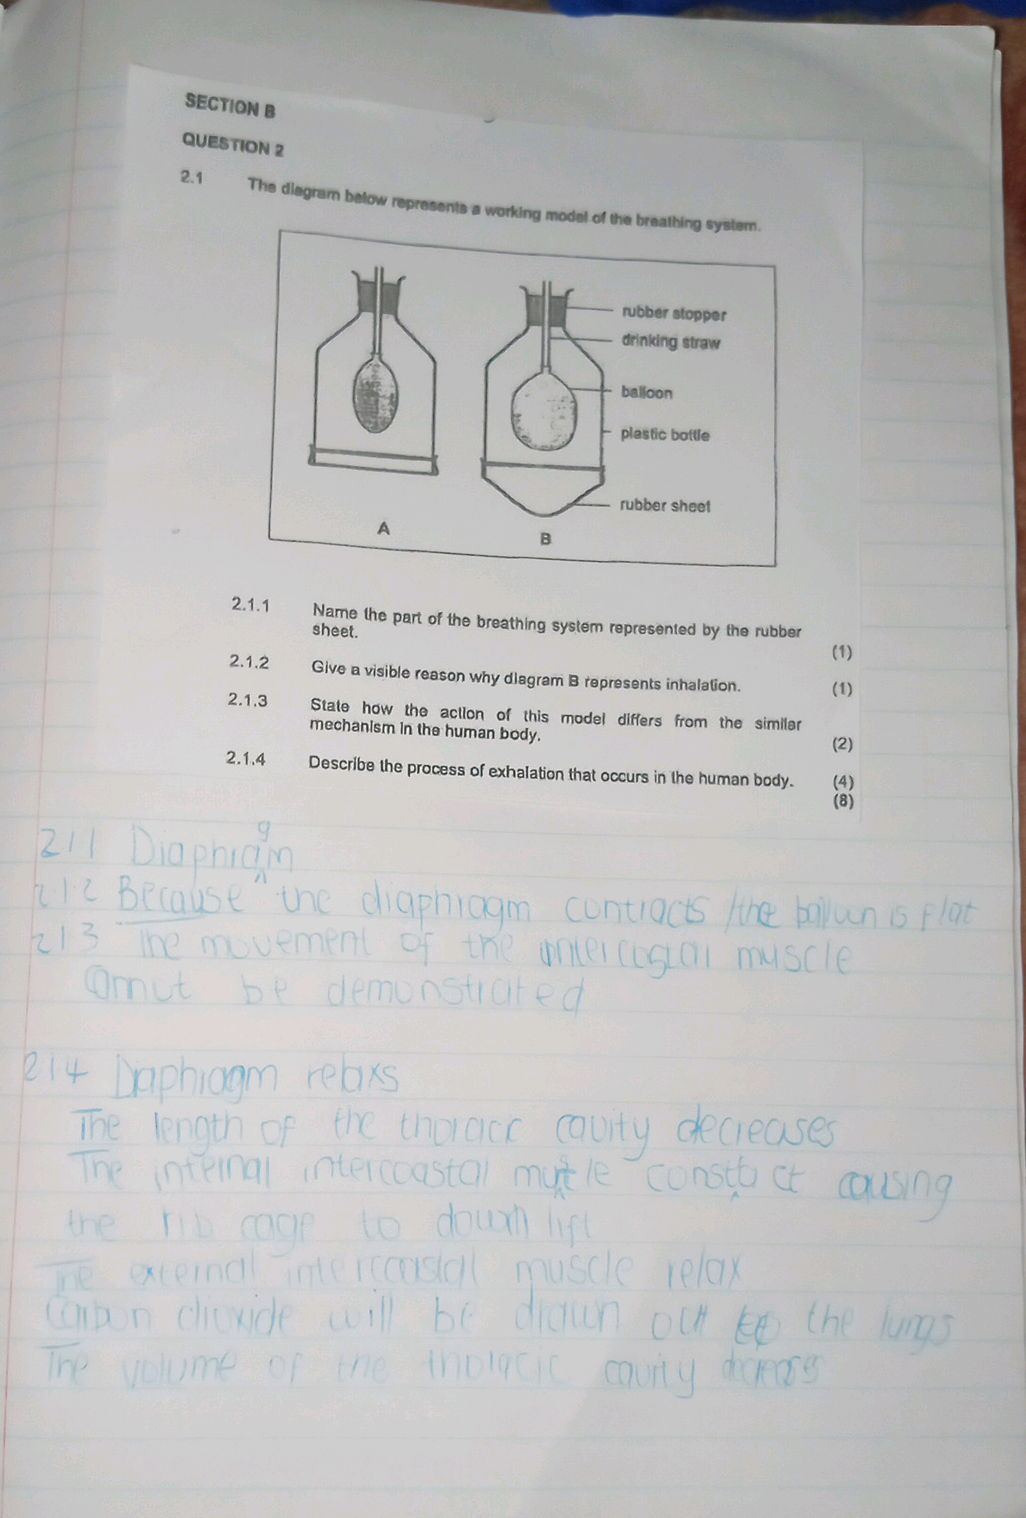 SECTION B
QUESTION 2
2.1 The diagram below represents a working model of the breathing system.
rubber stopper
drinking straw
balloon
plastic bottle
rubber sheet
A
B
2.1.1 Name the part of the breathing system represented by the rubber
sheet. (1)
2.1.2 Give a visible reason why diagram B represents inhalation. (1)
2.1.3 State how the action of this model differs from the similar
mechanism in the human body. (2)
2.1.4 Describe the process of exhalation that occurs in the human body. (4)
(8)
211 Diaphragm
212 Because the diaphragm contracts / the balloon is flat
213 The movement of the intercostal muscle
be demonstrated
214 Diaphragm relaxs
The length of the thoracic cavity decreases
The internal intercoastal causing
the rib cage to down lift
The external intercoastal muscle relax
Carbon dioxide will be drawn out the lungs
The volume of the thoracic cavity